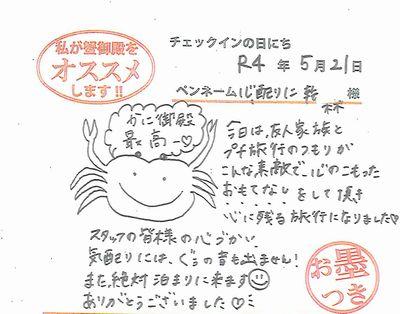 私が蟹御殿を
オススメ
します!!
チェックインの日にち
R4 年 5月21日
ペンネーム 心配りに乾杯 様
かに御殿
最高ー♡
今日は、友人家族と
プチ旅行のつもりが
こんな素敵で、心のこもった
おもてなしをして頂き
心に残る旅行になりました♡
スタッフの皆様の心づかい、
気配りには、ぐぅの音も出ません!
また、絶対泊まりに来ます☺
ありがとうございました♡
お墨
つき